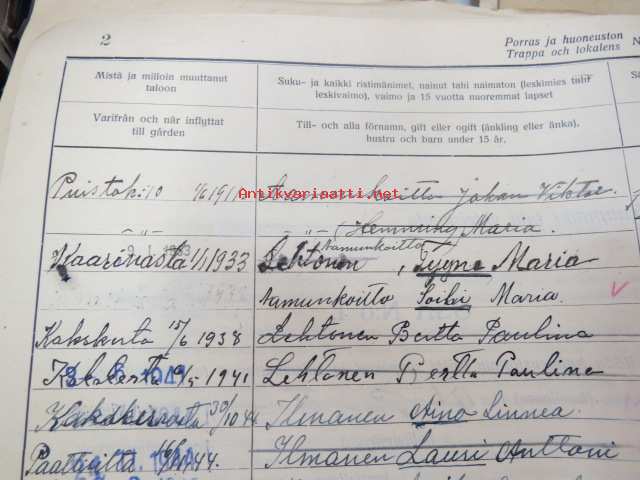 2
Porras ja huoneuston N
Trappa och lokalens
Mistä ja milloin muuttanut
taloon
Suku- ja kaikki ristimänimet, nainut tahi naimaton (leskimies tali
leskivaimo), vaimo ja 15 vuotta nuoremmat lapset
Varifrån och när inflyttat
till gården
Till- och alla förnamn, gift eller ogift (änkling eller änka),
hustru och barn under 15 år.
Puistok: 10 1/6 191 Johan Viktor
Antikvariaatti.net
Hemming Maria.
Kaarinasta 1/1 1933 Lehtonen, Tyyne Maria
Aamunkoitto
Aamunkoitto Soile Maria.
Kakskerta 15/6 1938 Lehtonen Bertta Paulina
1941 Lehtonen Bertta Paulina
30/10 44 Ilmanen Aino Linnea.
Paattisilta 44. Ilmanen Lauri Anttoni